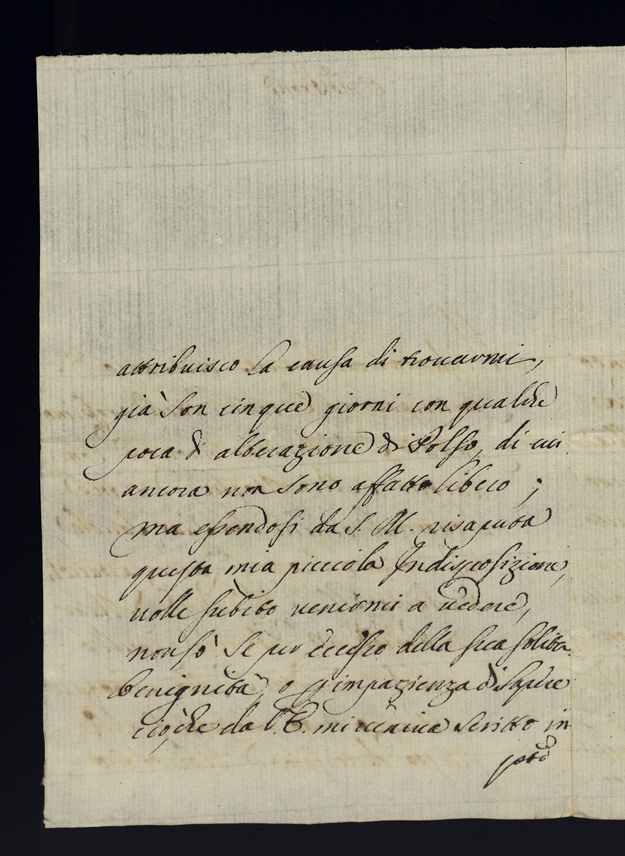 attribuisco la causa di trovarmi,
già son cinque giorni con qualche
poca di alterazione di Polso, di cui
ancora non sono affatto libero;
ma essendosi da S. M. risaputa
questa mia picciola Indisposizione,
volle subito venirmi a vedere,
non sò se per eccesso della sua solita
benignità, o p impazienza di sapere
ciò, che da V. E. mi veniva scritto in